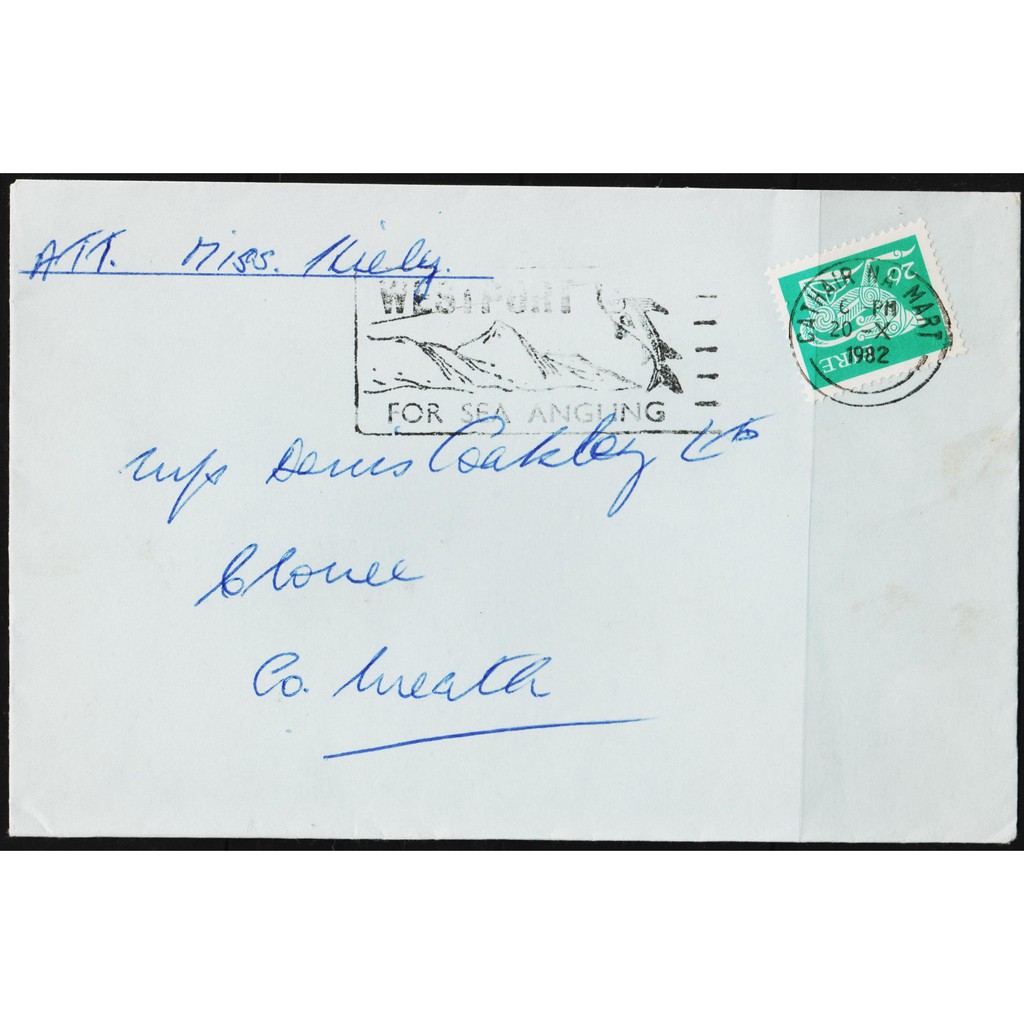 ATT. Miss. Kiely.
WESTPORT
FOR SEA ANGLING
CATHAIR NA MART
C PM
20 -X
1982
26
ÉIRE
M/s Denis Coakley Ltd
Clonee
Co. Meath